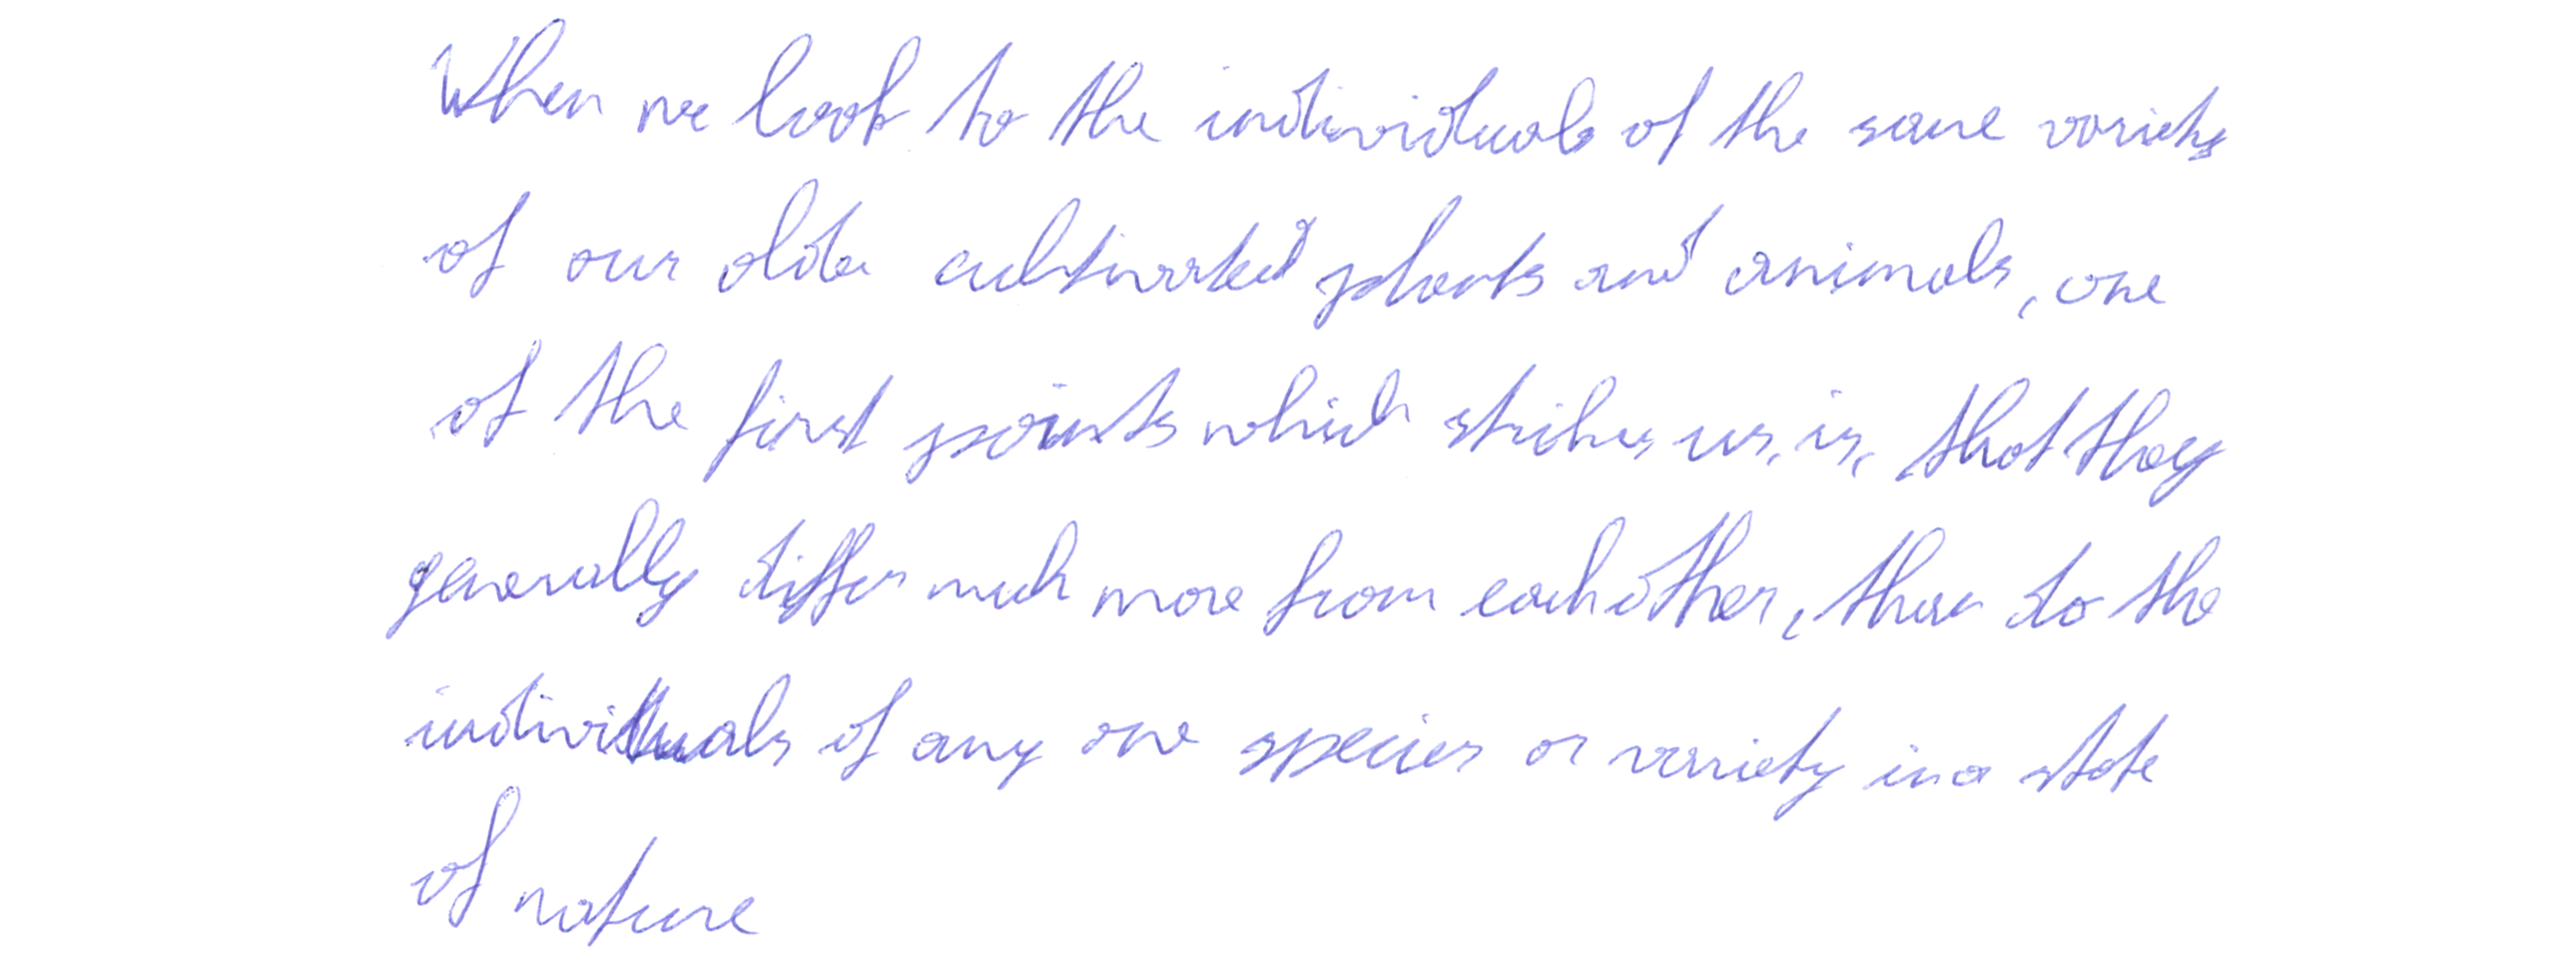 When we look to the individuals of the same variety
of our older cultivated plants and animals, one
of the first points which strikes us, is, that they
generally differ much more from each other, than do the
individuals of any one species or variety in a state
of nature